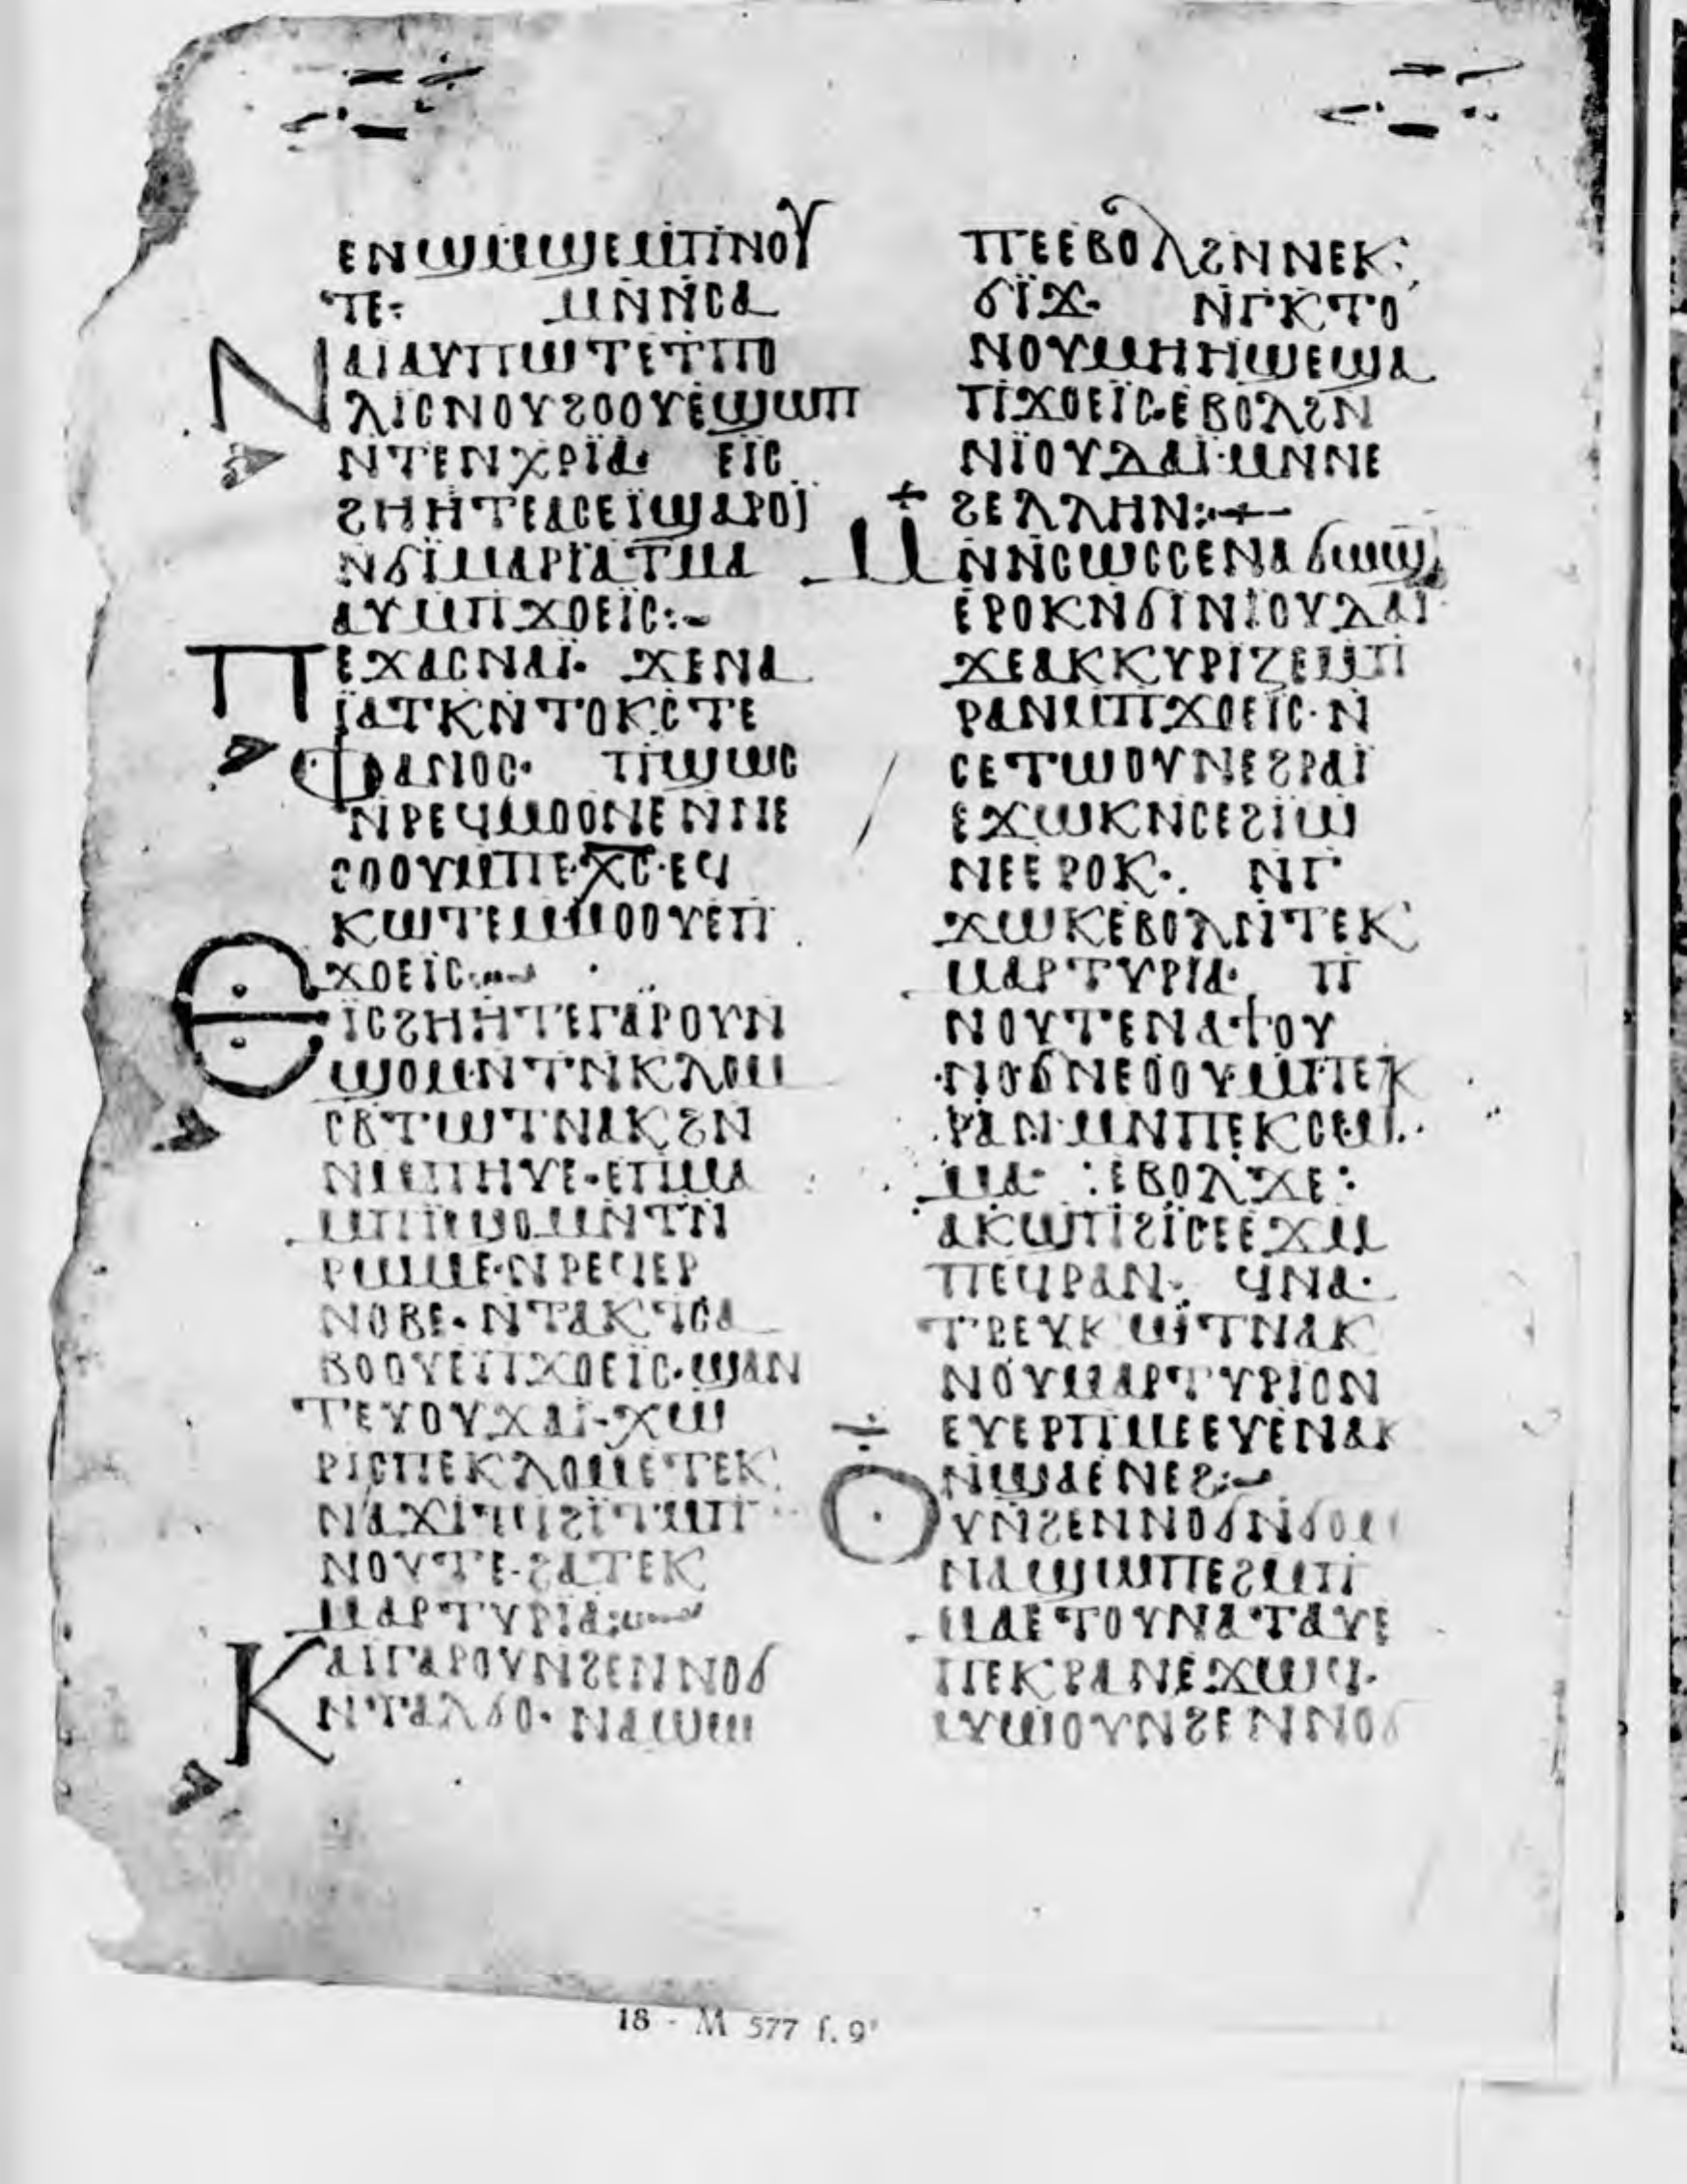 ⲉⲛϣⲙϣⲉⲙⲡⲛⲟⲩ
ⲧⲉ· ⲙⲛⲛⲥⲁ
ⲛⲁⲓⲁⲩⲡⲱⲧⲉⲧⲡⲟ
ⲗⲓⲥⲛⲟⲩϩⲟⲟⲩⲉϣⲱⲡ
ⲛⲧⲉⲛⲭⲣⲓⲁ· ⲉⲓⲥ
ϩⲏⲏⲧⲉⲁⲥⲉⲓϣⲁⲣⲟⲓ
ⲛϭⲓⲙⲁⲣⲓⲁⲧⲙⲁ
ⲁⲩⲙⲡϫⲟⲉⲓⲥ:-
ⲡⲉϫⲁⲥⲛⲁⲓ· ϫⲉⲛⲁ
ⲓⲁⲧⲕⲛⲧⲟⲕⲥⲧⲉ
ⲫⲁⲛⲟⲥ· ⲡϣⲱⲥ
ⲛⲣⲉϥⲙⲟⲟⲛⲉⲛⲛⲉ
ⲥⲟⲟⲩⲙⲡⲉⲭⲥ·ⲉϥ
ⲕⲱⲧⲉⲙⲙⲟⲟⲩⲉⲡ
ϫⲟⲉⲓⲥ:-
ⲉⲓⲥϩⲏⲏⲧⲉⲅⲁⲣⲟⲩⲛ
ϣⲟⲙⲛⲧⲛⲕⲗⲟⲙ
ⲥⲃⲧⲱⲧⲛⲁⲕϩⲛ
ⲛⲙⲡⲏⲩⲉ·ⲉⲡⲙⲁ
ⲙⲡϣⲟⲙⲛⲧⲛ
ⲣⲱⲙⲉ·ⲛⲣⲉϥⲉⲣ
ⲛⲟⲃⲉ·ⲛⲧⲁⲕⲧⲥⲁ
ⲃⲟⲟⲩⲉⲡϫⲟⲉⲓⲥ·ϣⲁⲛ
ⲧⲉⲩⲟⲩϫⲁⲓ·ⲭⲱ
ⲣⲓⲥⲡⲉⲕⲗⲟⲙⲉⲧⲉⲕ
ⲛⲁϫⲓⲧϥϩⲓⲧⲙⲡ
ⲛⲟⲩⲧⲉ·ϩⲁⲧⲉⲕ
ⲙⲁⲣⲧⲩⲣⲓⲁ:-
ⲕⲁⲓⲅⲁⲣⲟⲩⲛϩⲉⲛⲛⲟϭ
ⲛⲧⲁⲗϭⲟ·ⲛⲁϣⲱ
ⲡⲉⲉⲃⲟⲗϩⲛⲛⲉⲕ
ϭⲓϫ· ⲛⲅⲕⲧⲟ
ⲛⲟⲩⲙⲏⲏϣⲉϣⲁ
ⲡϫⲟⲉⲓⲥ·ⲉⲃⲟⲗϩⲛ
ⲛⲓⲟⲩⲇⲁⲓ·ⲙⲛⲛⲉ
ϩⲉⲗⲗⲏⲛ:-
ⲙⲛⲛⲥⲱⲥⲥⲉⲛⲁϭⲱϣ
ⲉⲣⲟⲕⲛϭⲓⲛⲓⲟⲩⲇⲁⲓ
ϫⲉⲁⲕⲕⲩⲣⲓⲍⲉⲙⲡ
ⲣⲁⲛⲙⲡϫⲟⲉⲓⲥ·ⲛ
ⲥⲉⲧⲱⲟⲩⲛⲉϩⲣⲁⲓ
ⲉϫⲱⲕⲛⲥⲉϩⲓⲱ
ⲛⲉⲉⲣⲟⲕ·. ⲛⲅ
ϫⲱⲕⲉⲃⲟⲗⲛⲧⲉⲕ
ⲙⲁⲣⲧⲩⲣⲓⲁ· ⲡ
ⲛⲟⲩⲧⲉⲛⲁϯⲟⲩ
ⲛⲟϭⲛⲉⲟⲟⲩⲙⲡⲉⲕ
ⲣⲁⲛ·ⲙⲛⲡⲉⲕⲥⲙ
ⲙⲁ· ⲉⲃⲟⲗϫⲉ
ⲁⲕϣⲡϩⲓⲥⲉⲉϫⲙ
ⲡⲉϥⲣⲁⲛ· ϥⲛⲁ·
ⲧⲣⲉⲩⲕⲱⲧⲛⲁⲕ
ⲛⲟⲩⲙⲁⲣⲧⲩⲣⲓⲟⲛ
ⲉⲩⲉⲣⲡⲙⲉⲉⲩⲉⲛⲁⲕ
ⲛϣⲁⲉⲛⲉϩ:-
ⲟⲩⲛϩⲉⲛⲛⲟϭⲛϭⲟⲙ
ⲛⲁϣⲱⲡⲉϩⲙⲡ
ⲙⲁⲉⲧⲟⲩⲛⲁⲧⲁⲩⲉ
ⲡⲉⲕⲣⲁⲛⲉϫⲱϥ·
ⲁⲩⲱⲟⲩⲛϩⲉⲛⲛⲟϭ
18 - M 577 f. 9ᵛ